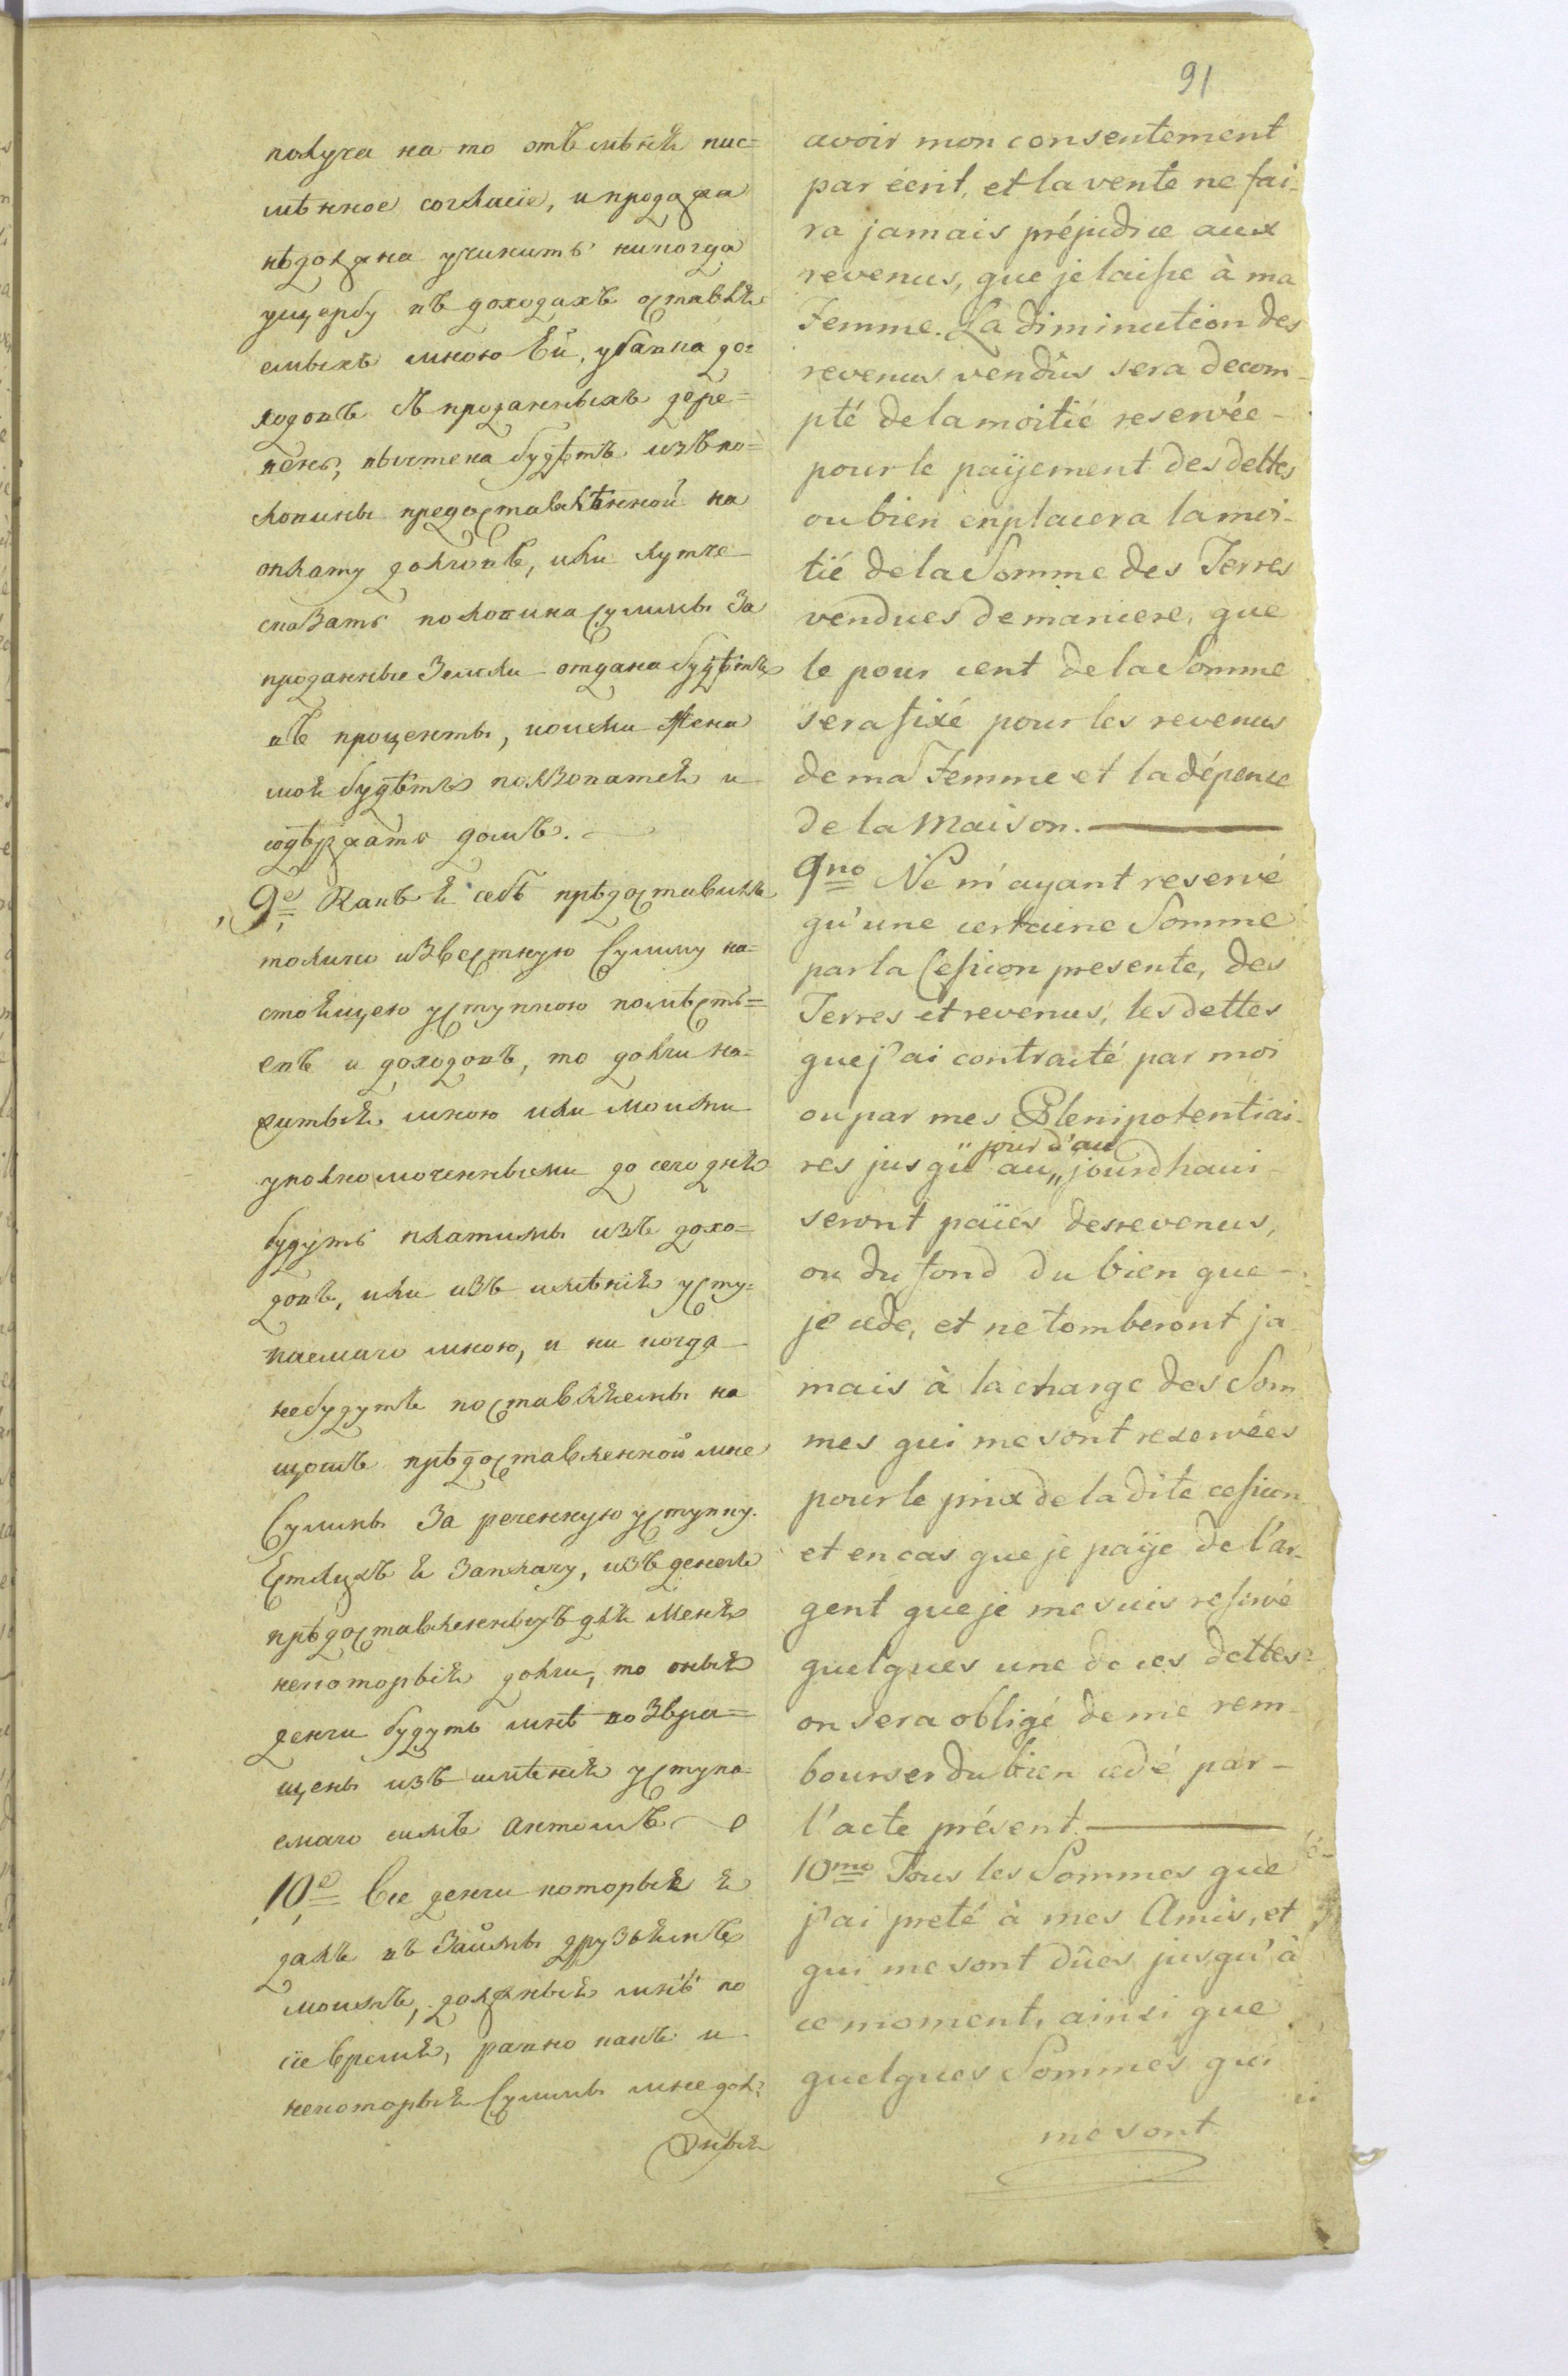 91
получа на то отъ мѣня пис=
мѣнное согласіе, и продажа
нѣдолжна учинить никогда
ущербу въ доходахъ оставлѣ
емыхъ мною Ѣй, убавка до=
ходовъ съ проданныхъ дере=
вень, вычтена будѣтъ изъ по=
ловины предоставлѣнной на
оплату долговъ, или лутче
сказать половина суммы за
проданные Земли отдана будѣтъ
въ проценты, коими Жена
моя будѣтъ ползоватся и
содѣржать домъ.
9е Какъ я себѣ прѣдоставилъ
толико известную Сумму на=
стоящею уступкою помѣсть=
евъ и доходовъ, то долги на=
житыя мною или моими
уполномоченными до сего дня
будутъ платимы изъ дохо=
довъ, или изъ имѣния усту=
паемаго мною, и ни когда
небудутъ поставляемы на
щотъ прѣдоставленной мне
Суммы За реченную уступку.
Естлижъ я Заплачу, изъ денегъ
прѣдоставленныхъ для Меня
некоторыя долги, то оныя
денги будутъ мнѣ возвра=
щены изъ имѣния уступа=
емаго симъ Актомъ
10е Все денги которыя я
далъ въ Займы друзьямъ
моимъ, должныя мнѣ по
сіе время, равно какъ и
некоторыя Суммы мне дол=
жныя
avoir mon consentement
par écrit, et la vente ne fai-
ra jamais préjudice aux
revenus, que je laisse à ma
Femme. La diminution des
revenus vendûs sera decom-
pté de la moitié reservée -
pour le païjement des dettes
ou bien enplacera la moi-
tié de la Somme des Terres
vendues de maniere, que
le pour cent de la Somme
sera fixé pour les revenus
de ma Femme et la dépence
de la Maison.
9no Ne m'ayant reservé
qu'une certaine Somme
par la Cession presente, des
Terres et revenus, les dettes
que j'ai contracté par moi
ou par mes Plenipotentiai-
jour d'au
res jusqu'au jourdhaui -
seront païes des revenus,
ou du fond du bien que -
je cede, et ne tomberont ja
mais à la charge des Som
mes qui me sont reservées
pour le prix de la dite cession
et en cas que je païje de l'ar-
gent que je me suis reservé
quelques une de ces dettes
on sera obligé de me rem-
bourser du bien cedé par -
l'acte présent.
10mo Tous les Sommes que
j'ai preté à mes Amis, et
qui me sont dûes jusqu'à
ce moment, ainsi que
quelques Sommes qui
me sont